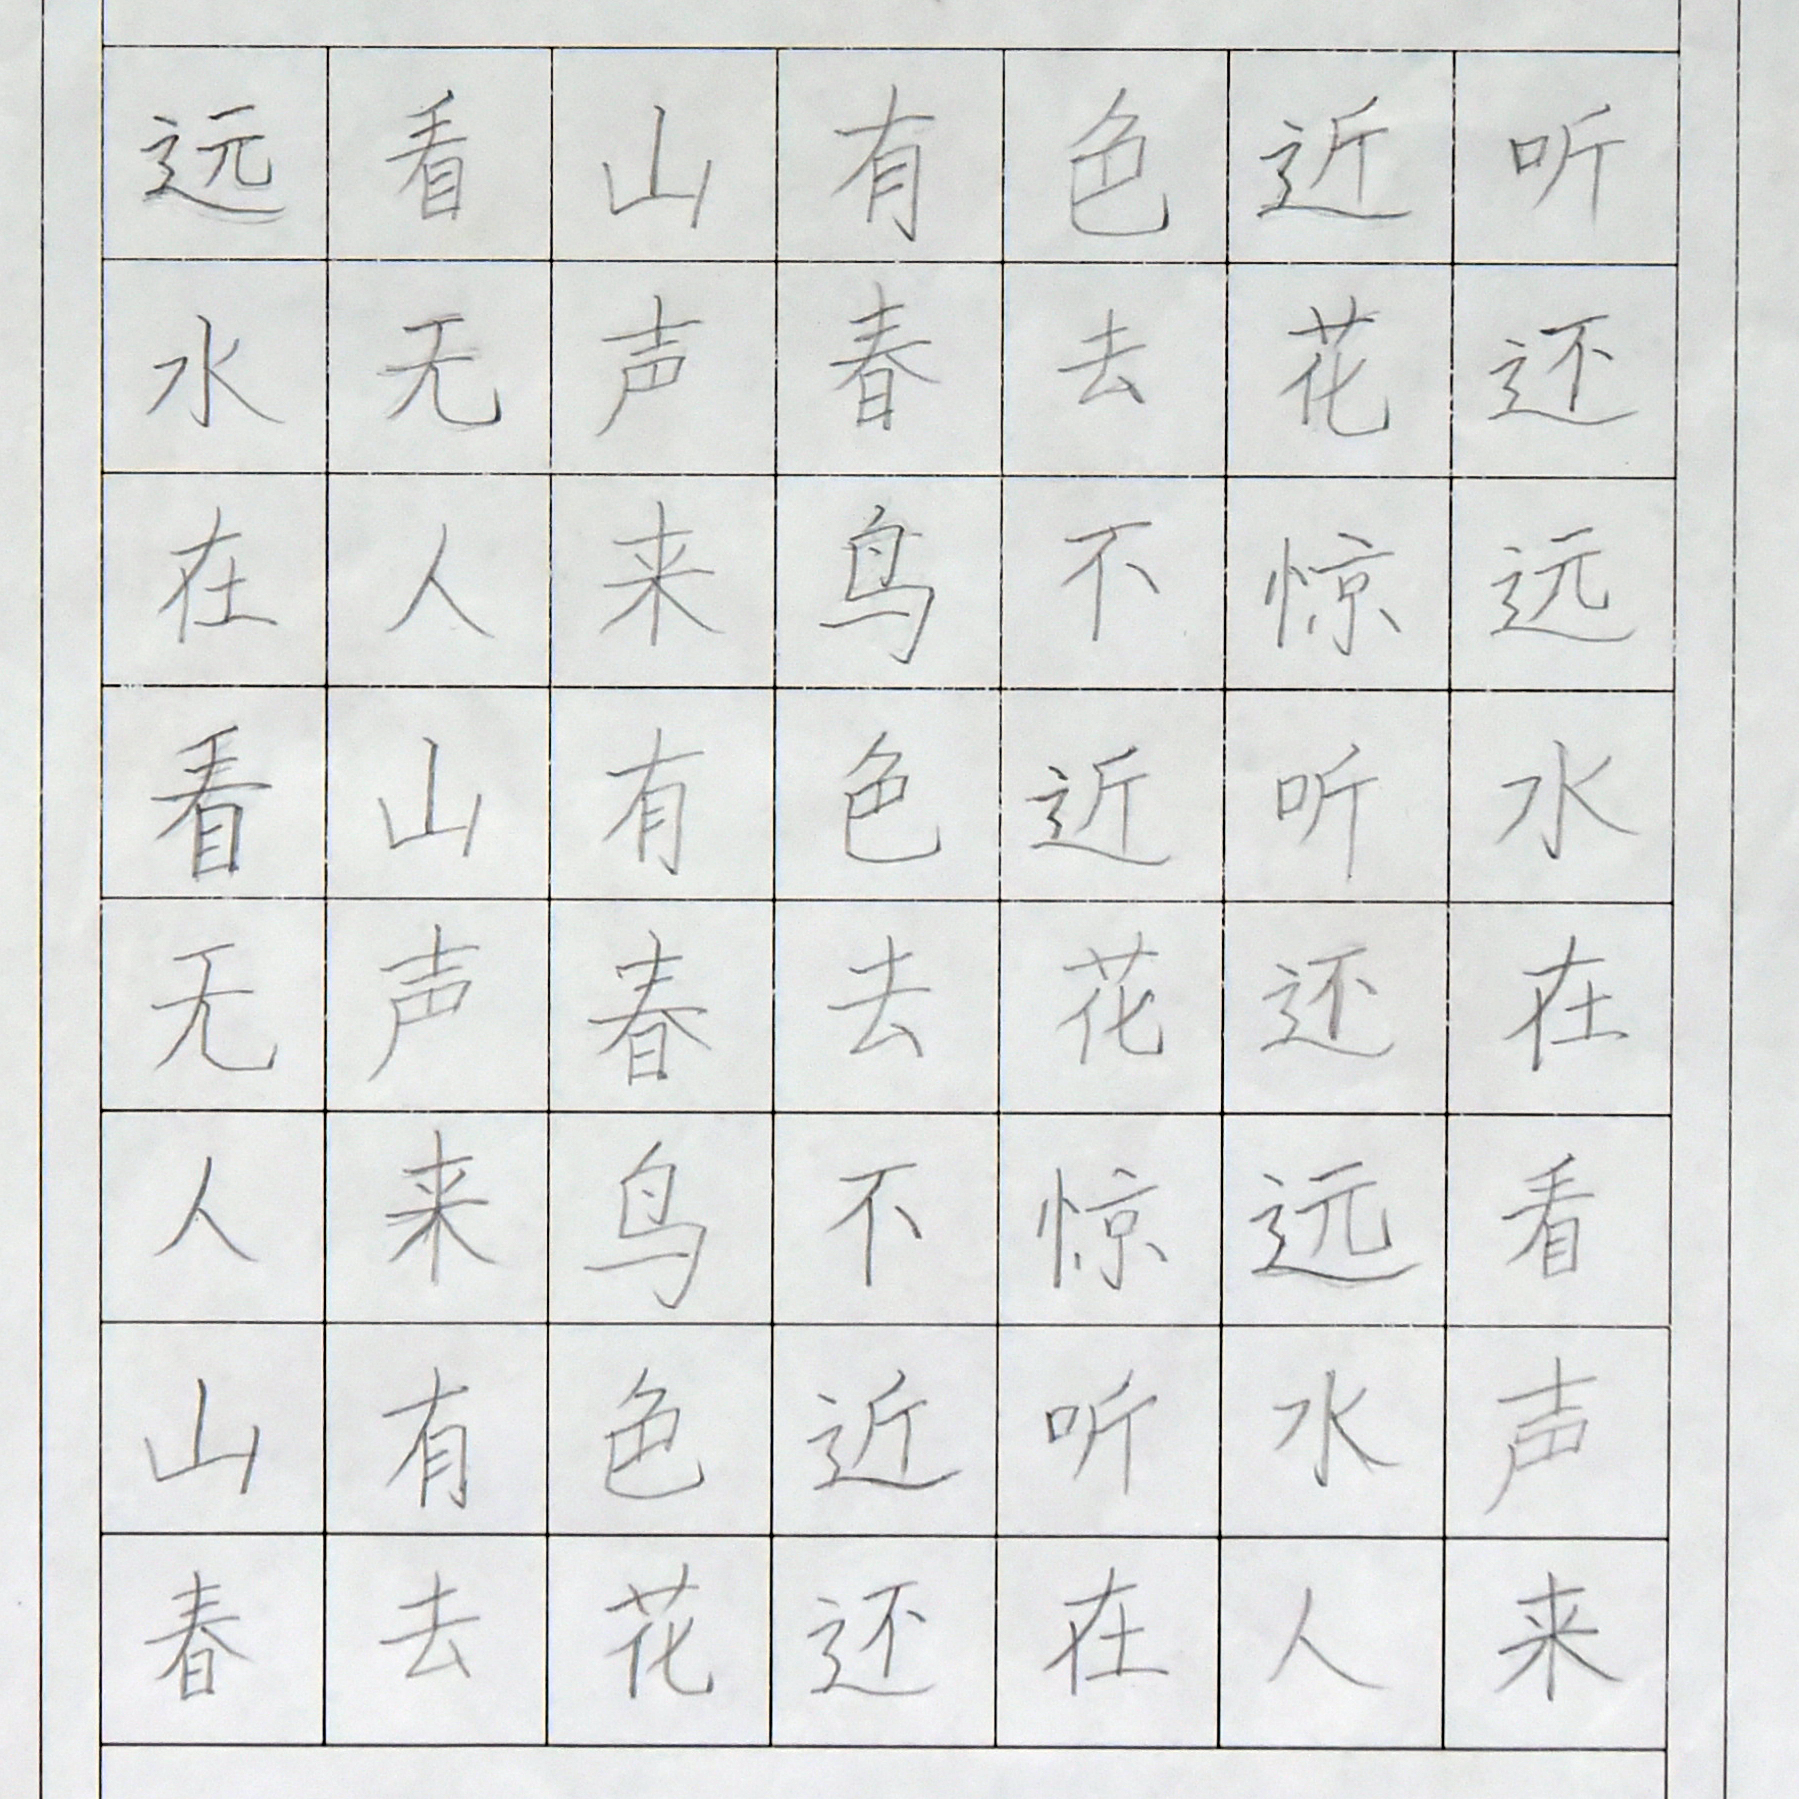 远看山有色近听
水无声春去花还
在人来鸟不惊远
看山有色近听水
无声春去花还在
人来鸟不惊远看
山有色近听水声
春去花还在人来